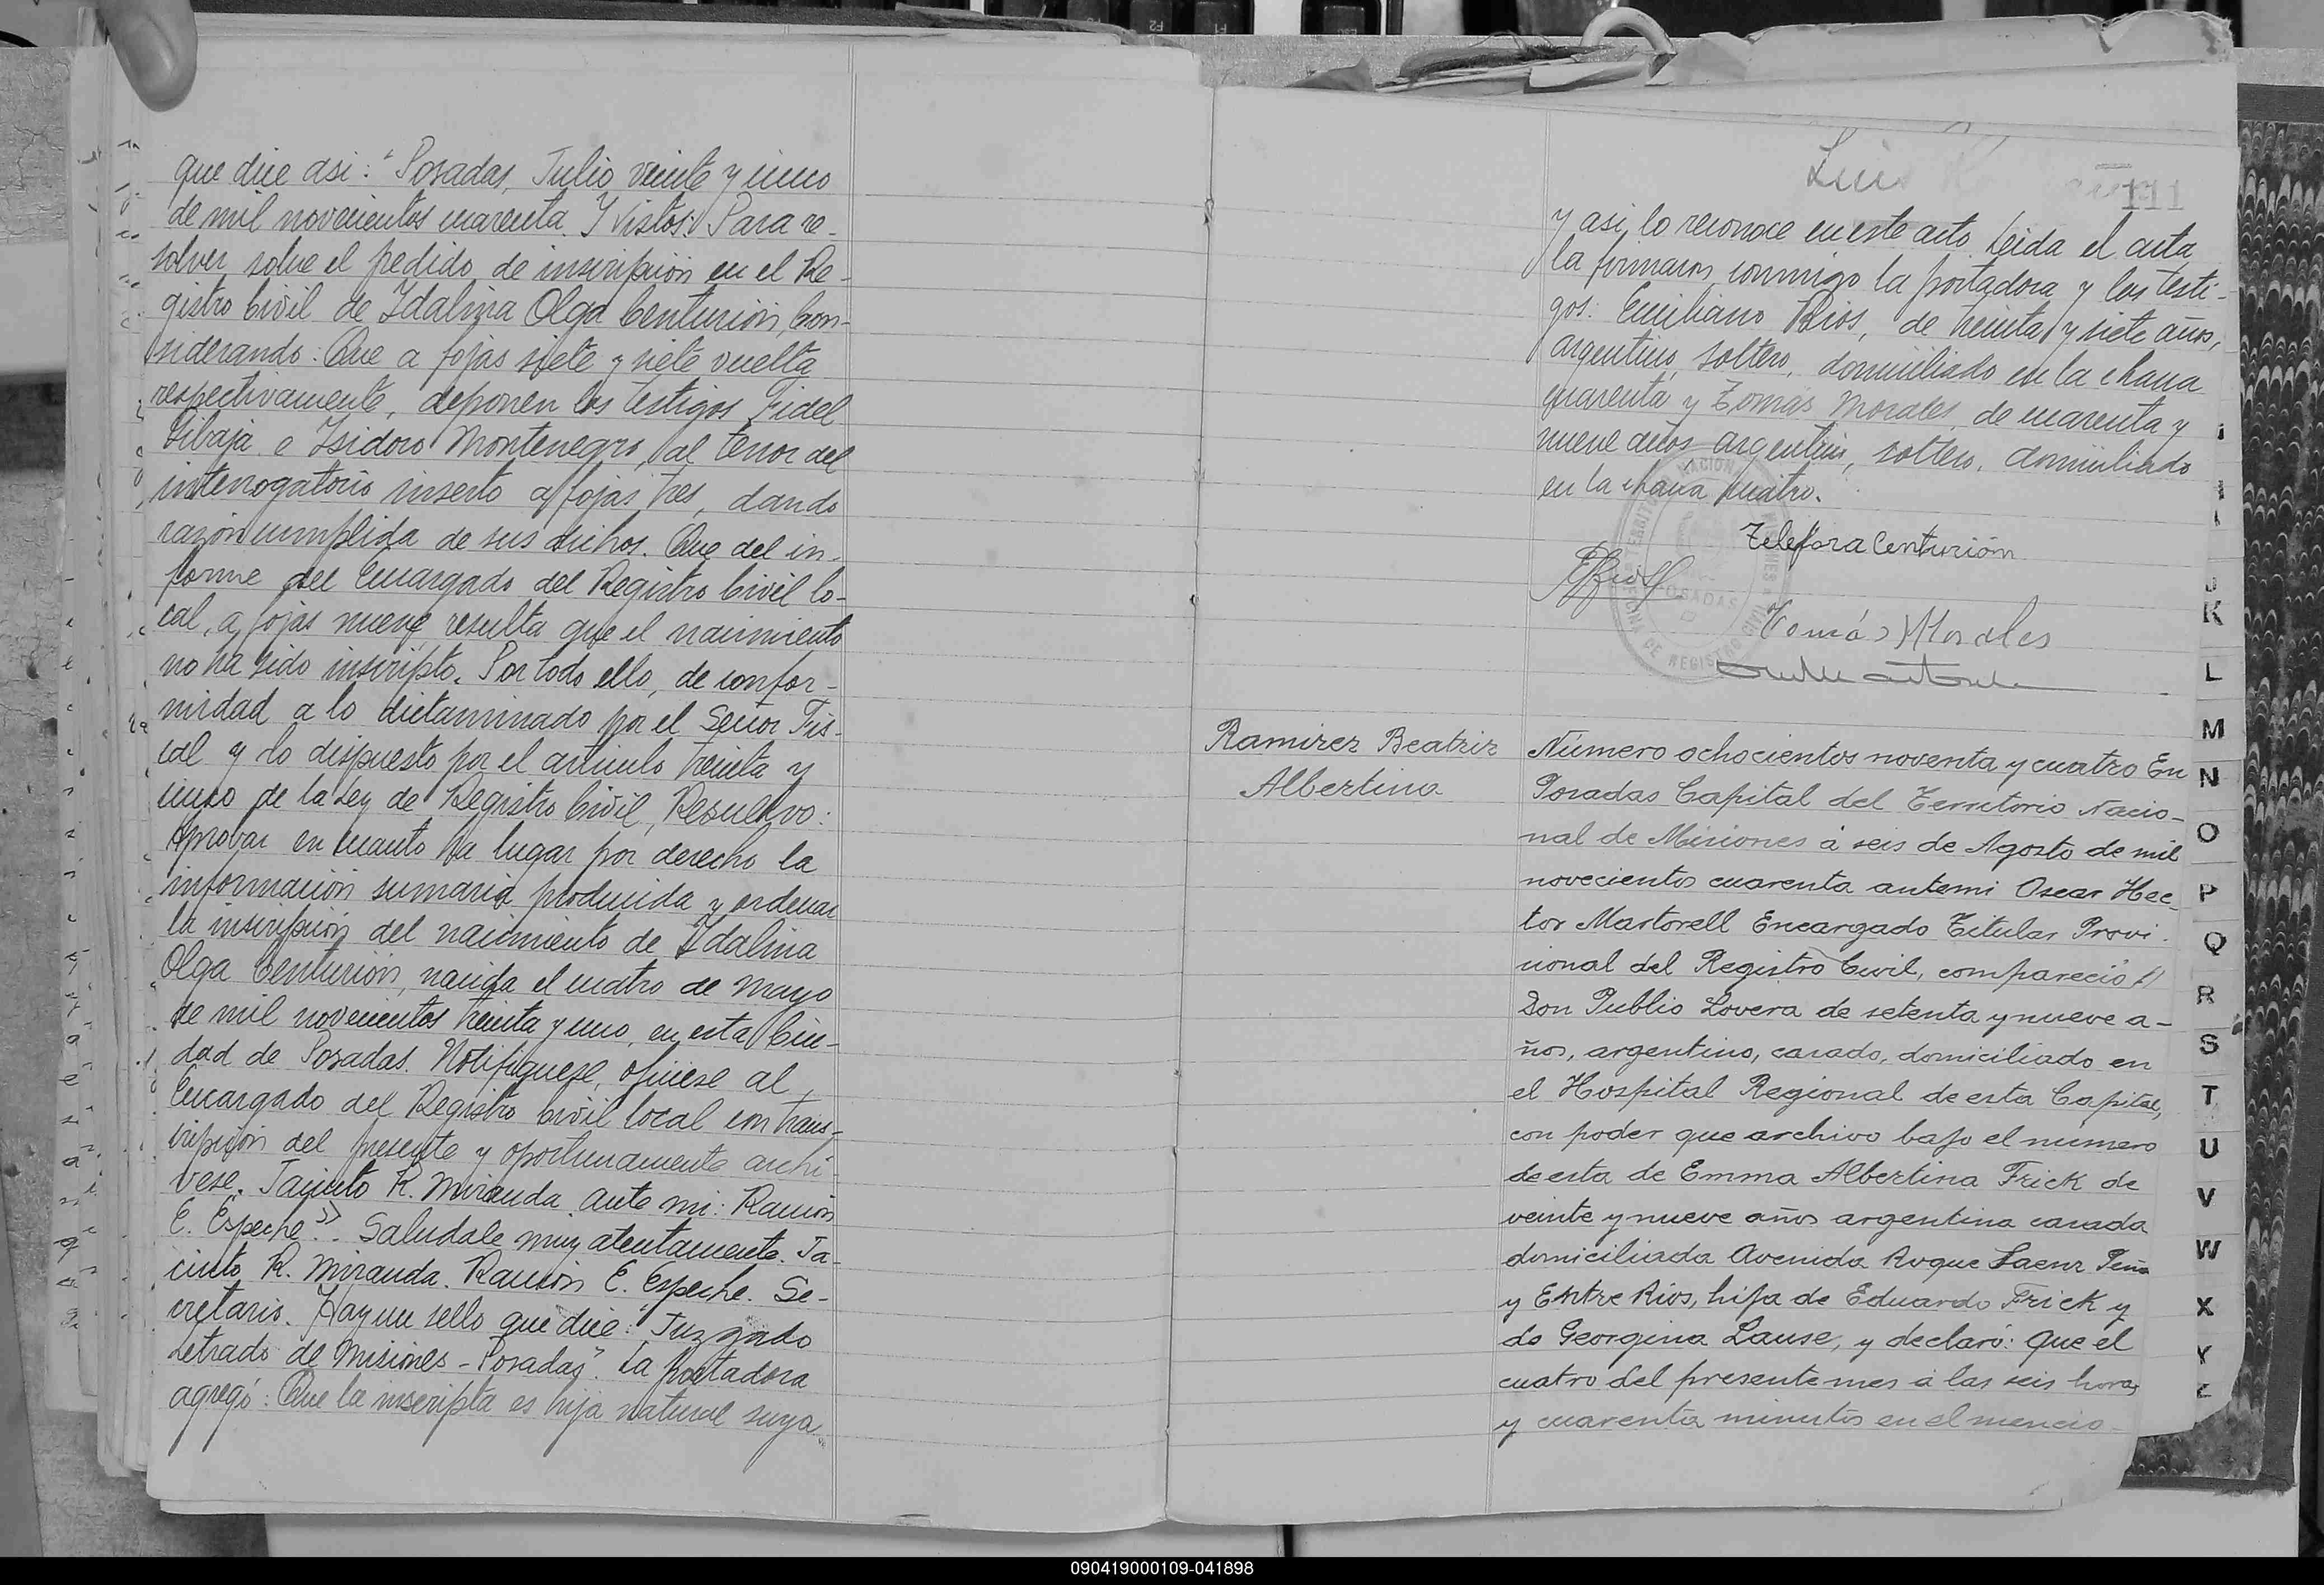 que dice asi: "Posadas, Julio veinte y cinco
de mil novecientos cuarenta. Y Vistos: Para re-
solver sobre el pedido de inscripción en el Re-
gistro Civil de Idalina Olga Centurión, Con-
siderando: Que a fojas siete y siete vuelta
respectivamente, deponen los testigos Fidel
Gibaja e Isidoro Montenegro, al tenor del
interrogatorio inserto a fojas tres, dando
razón cumplida de sus dichos. Que del in-
forme del Encargado del Registro Civil lo-
cal, a fojas nueve resulta que el nacimiento
no ha sido inscripto. Por todo ello, de confor-
midad a lo dictaminado por el Señor Fis-
cal y lo dispuesto por el articulo treinta y
cinco de la Ley de Registro Civil, Resuelvo:
Aprobar en cuanto ha lugar por derecho la
información sumaria producida y ordenar
la inscripción del nacimiento de Idalina
Olga Centurión, nacida el cuatro de Mayo
de mil novecientos treinta y uno, en esta Ciu-
dad de Posadas. Notifiquese, ofíciese al
Encargado del Registro Civil local con trans-
cripción del presente y oportunamente archi-
vese. Jacinto R. Miranda. Ante mi: Ramón
E. Espeche". Saludale muy atentamente. Ja-
cinto R. Miranda. Ramón E. Espeche. Se-
cretario. Hay un sello que dice: "Juzgado
Letrado de Misiones - Posadas". La portadora
agregó: Que la inscripta es hija natural suya
Luis
111
y asi lo reconoce en este acto. Leida el acta
la firmaron conmigo la portadora y los testi-
gos: Emiliano Rios, de treinta y siete años,
argentino, soltero, domiciliado en la chacra
cuarenta y Tomás Morales, de cuarenta y
nueve años argentino, soltero, domiciliado
en la chacra cuatro.
Telefora Centurión
Tomás Morales
POSADAS
Ramirez Beatriz
Albertina
Número ochocientos noventa y cuatro En
Posadas Capital del Territorio Nacio-
nal de Misiones á seis de Agosto de mil
novecientos cuarenta antemi Oscar Hec-
tor Martorell Encargado Titular Provi-
cional del Registro Civil, compareció
Don Publio Lovera de setenta y nueve a-
ños, argentino, casado, domiciliado en
el Hospital Regional de esta Capital,
con poder que archivo bajo el número
de esta de Emma Albertina Frick de
veinte y nueve años argentina casada
domiciliada Avenida Roque Saenz Peña
y Entre Rios, hija de Eduardo Frick y
de Georgina Lause, y declaró: Que el
cuatro del presente mes á las seis horas
y cuarenta minutos en el mencio-
J
K
L
M
N
O
P
Q
R
S
T
U
V
W
X
Y
Z
090419000109-041898